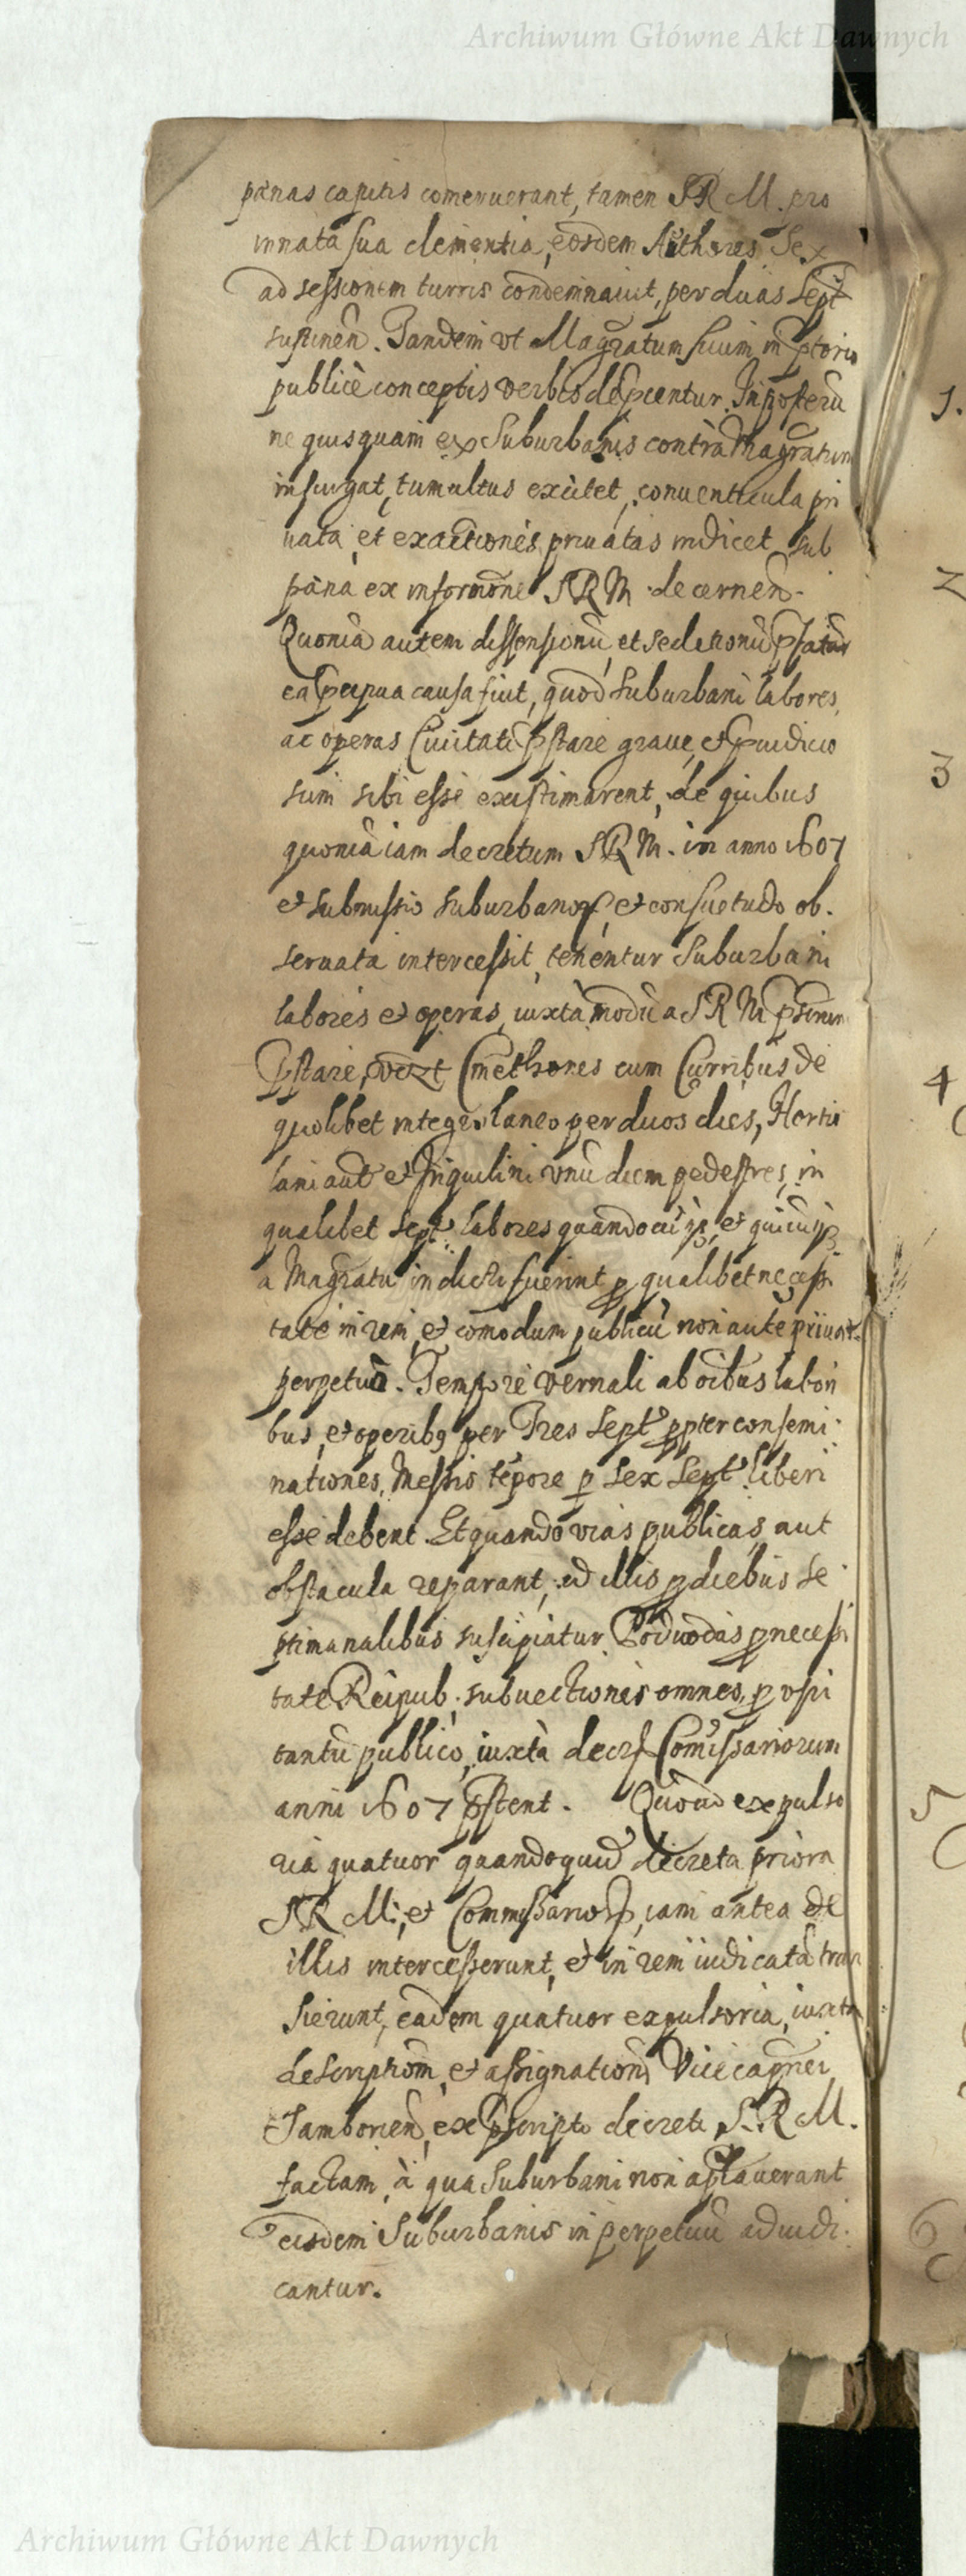 Archiwum Główne Akt Dawnych
pænas capitis comeruerant, tamen S R M. pro
innata sua clementia, eosdem Authores Sex
ad sessionem turris condemnauit, per duas Sept
sustinen̄. Tandem vt Magrātum suum in p̄torio
publicè conceptis verbis dep̄centur. In posterū
ne quisquam ex Suburbanis contrà Magrātum
insurgat, tumultus excitet, conuenticula pri
uata, et exactiones priuatas indicet sub
pæna ex informōne S R M. decernen̄.
Quoniā autem dissensionū, et seditionū p̄fatar
ea p̄cipua causa fuit, quod Suburbani labores,
ac operas Ciuitati p̄stare graue, et p̄iudicio
sum sibi esse existimarent, de quibus
quoniā iam decretum S R M. in anno 1607
et submissio suburbanor, et consuetudo ob.
seruata intercessit, tenentur Suburbani
labores et operas, iuxta modū a S R M
p̄stare, vczt Cmethones cum Curribus de
quolibet integro laneo per duos dies, Hortu
lani aut et Inquilini vnū diem pedestres, in
qualibet Sept. labores quandocūq, et quicūq
a Magrātu indicti fuerint p qualibet necessi
tate in rem, et comodum publicū non aute priuat.
perpetuò. Tempore vernali ab oībus labori
bus, et operibq per Tres Sept. ppter consemi-
nationes, Messis tēpore p sex Sept. liberi
esse debent. Et quando vias publicas, aut
obstacula reparant, id illis p diebus Se-
ptimanalibus suscipiatur Podwodas p necessi
tate Reipub. subuectiones omnes, p vsu
tantū publico, iuxtà decr Comissariorum
anni 1607 p̄stent. Quoad expulso
ria quatuor quandoquid decreta priora
S R M. et Commissarior, iam antea de
illis intercesserunt, et in rem iudicatā tran
sierunt, eadem quatuor expulsoria, iuxta
descriptiōm, et assignationē Vice capnei
Samborien̄, ex p̄scripto decreti S. R M.
factam, à qua Suburbani non apllauerant
eisdem Suburbanis in perpetuū adiudi-
cantur.
1.
2
3
4
5
6
Archiwum Główne Akt Dawnych